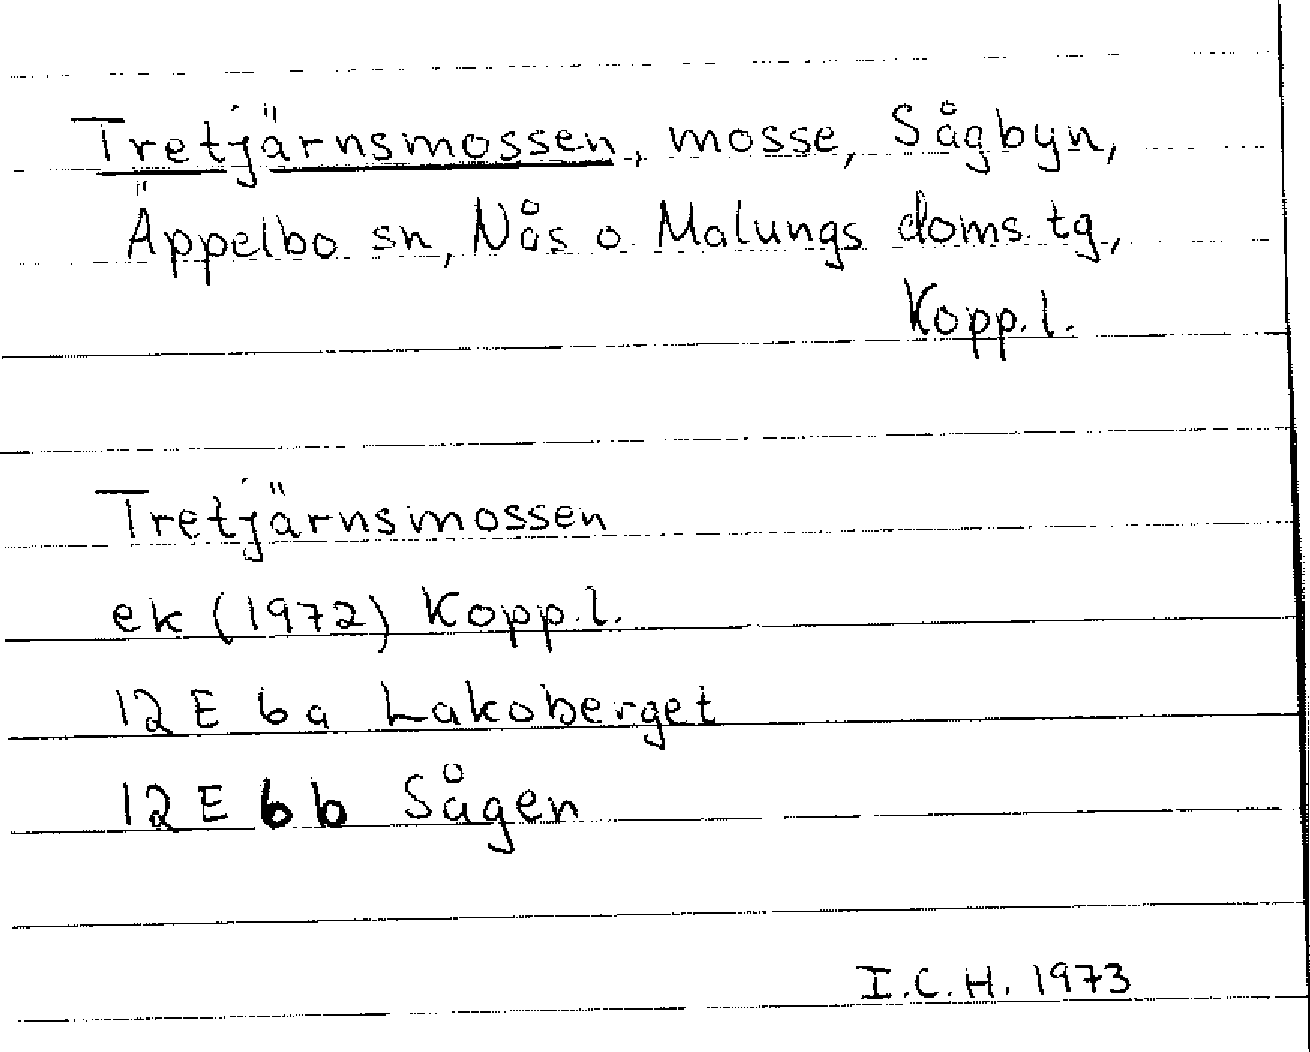 Tretjärnsmossen, mosse, Sågbyn,
Äppelbo sn, Nås o Malungs doms. tg,
Kopp. l.
Tretjärnsmossen
ek (1972) Kopp. l.
12 E 6a Lakoberget
12 E 6b Sågen
I.C.H. 1973